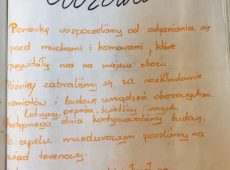 Pionierkę rozpoczęliśmy od odganiania się
przed muchami i komarami, które
przywitały nas na miejscu obozu.
Później zabraliśmy się za rozkładanie
namiotów i budowę urządzeń obozowych.
Latryny, świetlicy i innych.
Następnego dnia kontynuowaliśmy budowy.
O apelu mundurowym poszliśmy na